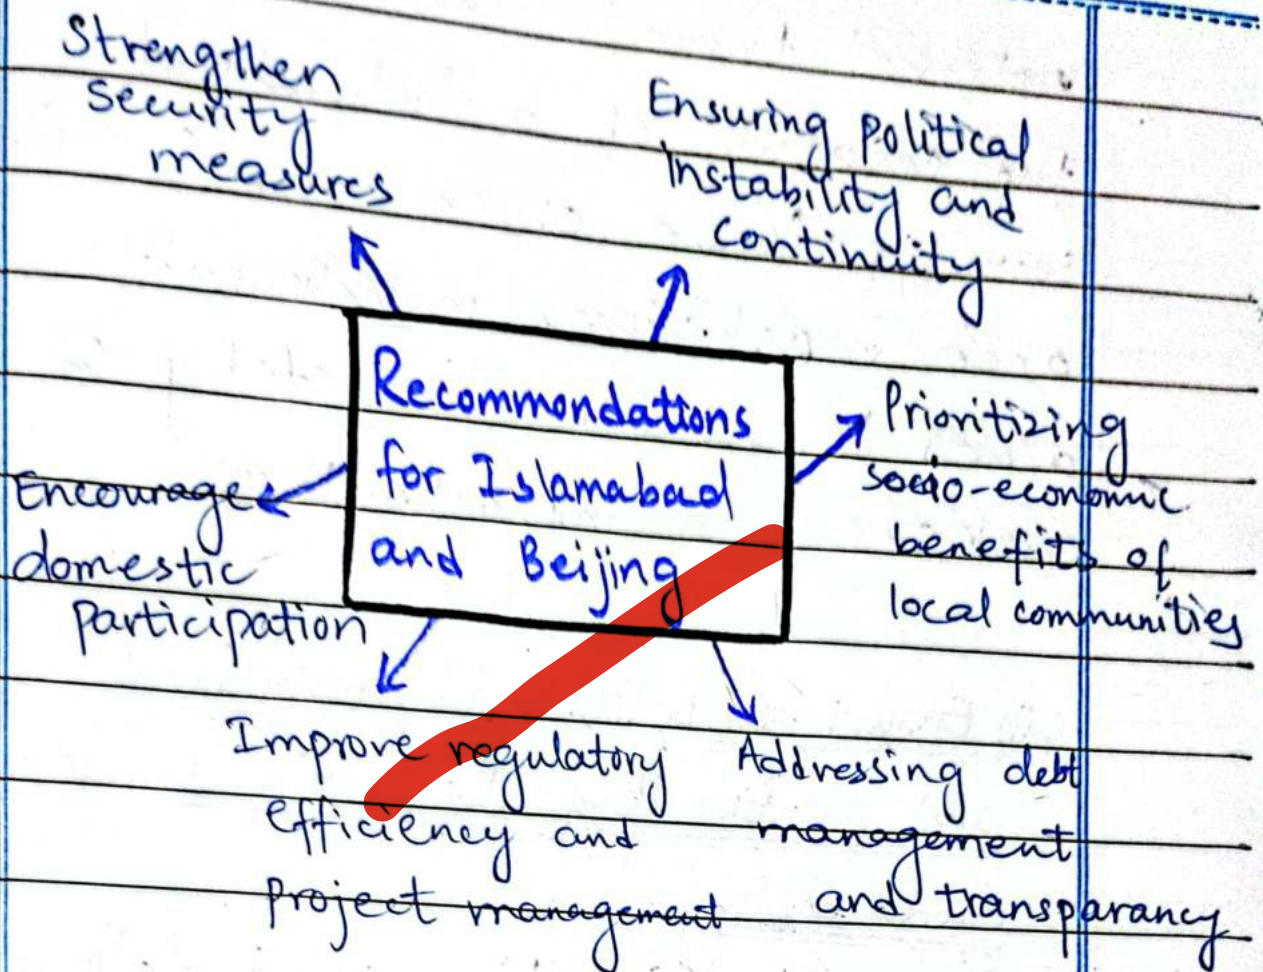 Strengthen
security
measures
Ensuring political
Instability and
continuity
Recommondations
for Islamabad
and Beijing
Prioritizing
socio-economic
benefits of
local communities
Encourage
domestic
participation
Improve regulatory
efficiency and
project management
Addressing debt
management
and transparancy